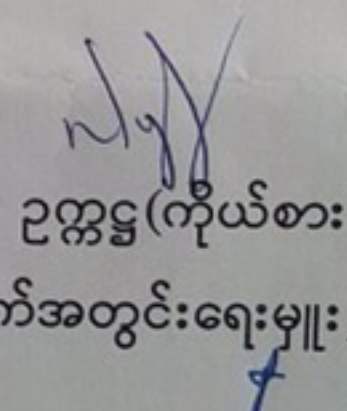 ဥက္ကဋ္ဌ(ကိုယ်စား
က်အတွင်းရေးမှူး